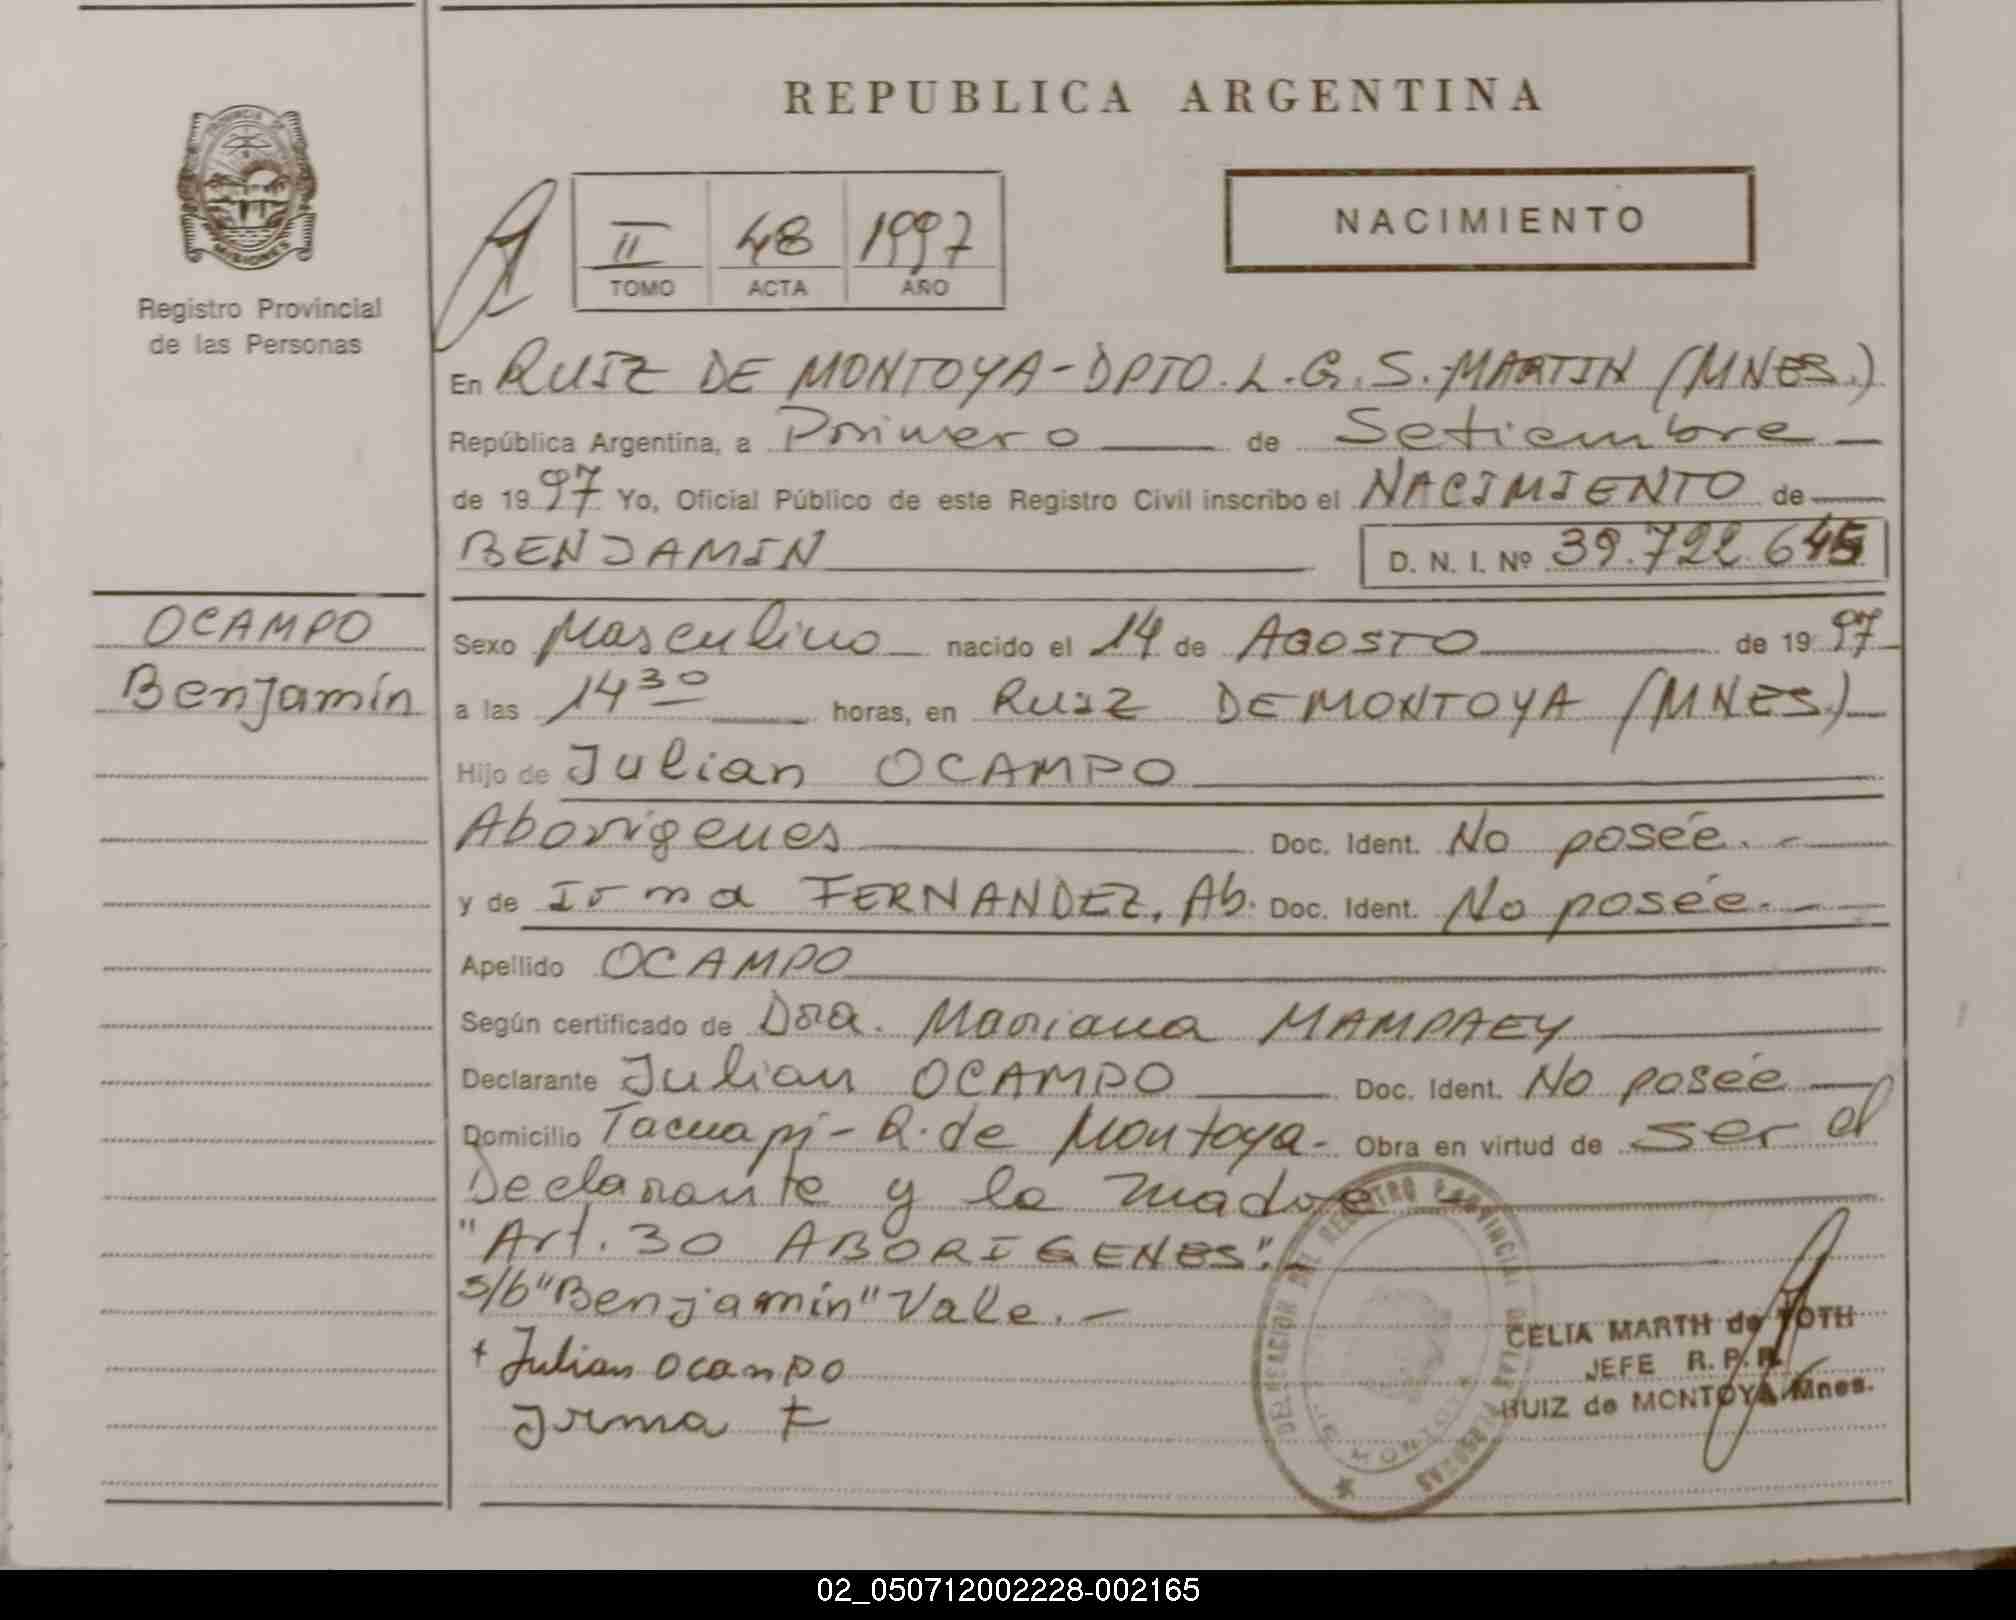 REPUBLICA ARGENTINA
PROVINCIA DE
MISIONES
Registro Provincial
de las Personas
II 48 1997
TOMO ACTA AÑO
NACIMIENTO
En RUIZ DE MONTOYA-DPTO. L.G.S.MARTIN (MNES.)
República Argentina, a Primero de Setiembre
de 1997 Yo, Oficial Público de este Registro Civil inscribo el NACIMIENTO de
BENJAMIN D. N. I. Nº 39.722.645
OCAMPO
Benjamín
Sexo Masculino nacido el 14 de AGOSTO de 1997
a las 14 30 horas, en RUIZ DE MONTOYA (MNES.)
Hijo de Julian OCAMPO
Aborigenes Doc. Ident. No posée.-
y de Irma FERNANDEZ, Ab. Doc. Ident. No posée.-
Apellido OCAMPO
Según certificado de Dra. Mariana MAMPAEY
Declarante Julian OCAMPO Doc. Ident. No posée
Domicilio Tacuapi - R. de Montoya- Obra en virtud de ser el
Declarante y la madre -
"Art. 30 ABORIGENES".-
s/b "Benjamín" Vale.-
+ Julian ocampo
Irma F
DELEGACION DEL REGISTRO PROVINCIAL DE LAS PERSONAS
MONTOYA
CELIA MARTH de TOTH
JEFE R. P. P.
RUIZ de MONTOYA Mnes.
02_050712002228-002165